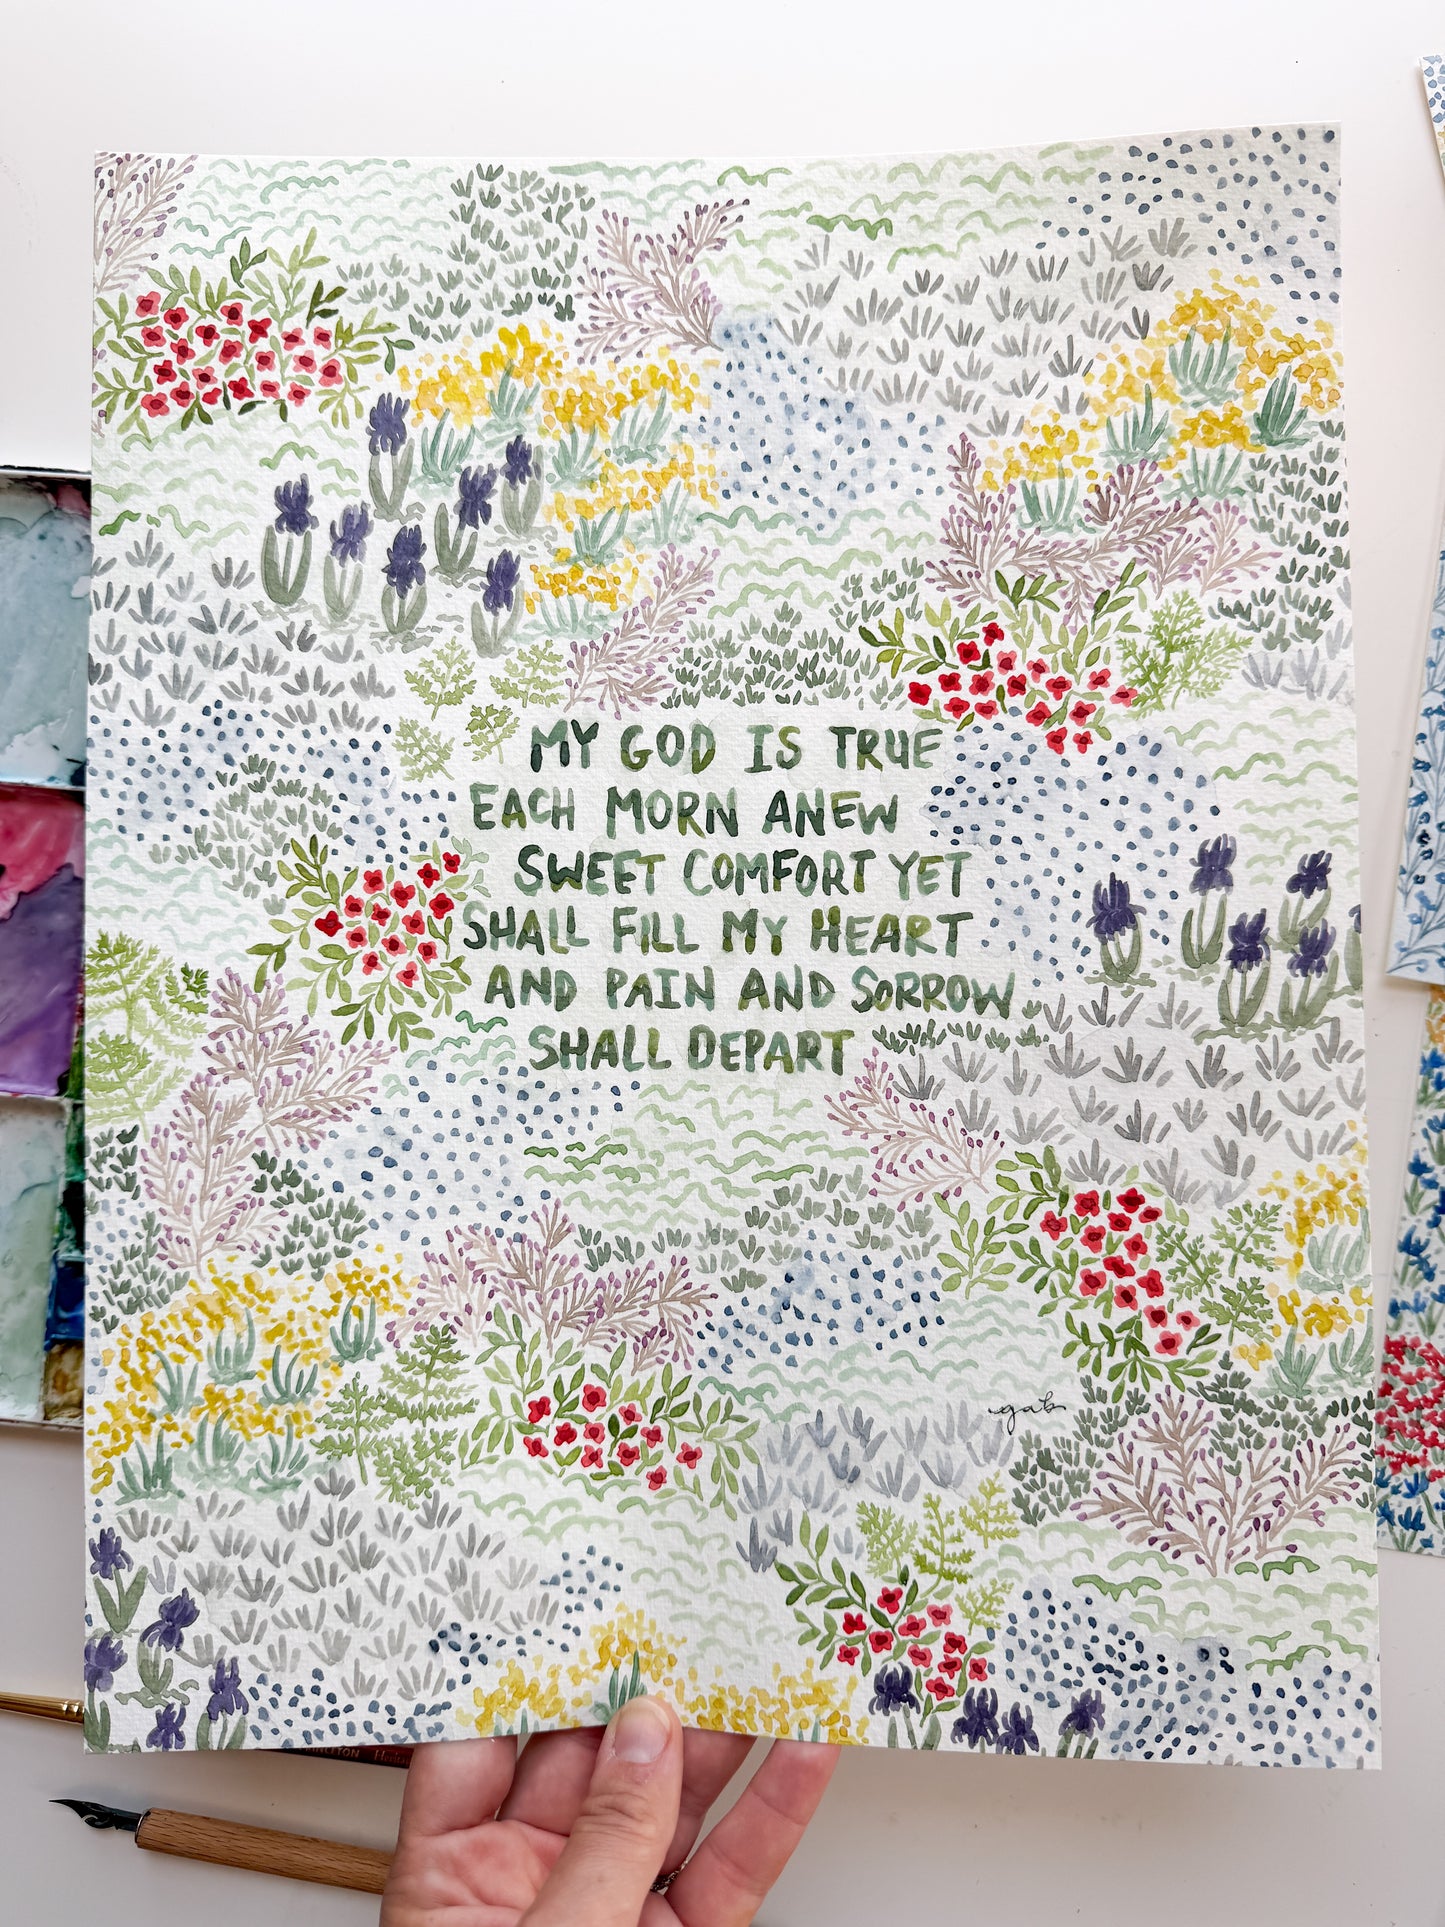 MY GOD IS TRUE
EACH MORN ANEW
SWEET COMFORT YET
SHALL FILL MY HEART
AND PAIN AND SORROW
SHALL DEPART
gab
PRINCETON